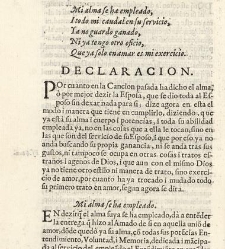 Mi alma se ha empleado,
I todo mi caudal en su servicio,
Ya no guardo ganado,
Ni ya tengo otro oficio,
Que ya solo en amar es mi exercicio.
DECLARACION.
POr quanto en la Cancion pasada ha dicho el alma,
ò por mejor dezir la Esposa, que se dio toda al Espo
so sin dexar nada para si; dize agora en ella el
modo i manera que tiene en cumplirlo, diziendo, que
ya està su alma i cuerpo i potencias, i toda su abilidad
empleada ya, no en las cosas que a ella le tocan, sino en
las que son del servicio de su Esposo, i que por eso ya no
anda buscando su propia ganancia, ni se anda tras sus
gustos, ni tampoco se ocupa en otras cosas i tratos es-
traños i agenos de Dios, i que aun con el mismo Dios
ya no tiene otro estilo ni manera de trato, sino exerci-
cio de amor, por cuanto ha ya trocado i mudado todo
su primero trato en amor, segun agora se dira.
Mi alma se ha empleado.
EN dezir que el alma suya se ha empleado, dà a enten-
der la entrega que hizo al Amado de si en aquella union de
amor, donde quedò ya su alma, con todas sus potencias En-
tendimiento, Voluntad, i Memoria, dedicada i mancipa-